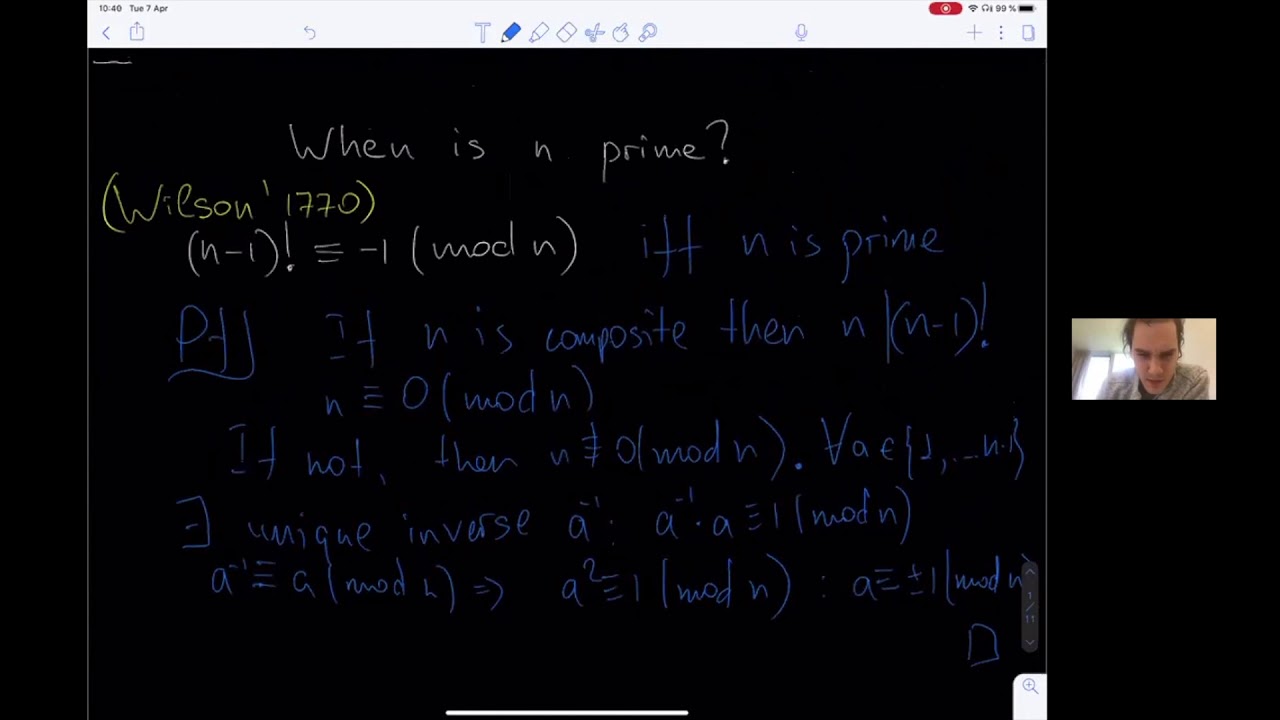 10:40 Tue 7 Apr
99 %
When is n prime?
(Wilson' 1770)
(n-1)! ≡ -1 (mod n) iff n is prime
Pff If n is composite then n |(n-1)!
n ≡ 0 (mod n)
If not, then n ≢ 0 (mod n). ∀a∈{1,...n-1}
∃ unique inverse a⁻¹: a⁻¹·a ≡ 1 (mod n)
a⁻¹ ≡ a (mod n) => a² ≡ 1 (mod n) : a ≡ ±1 (mod n
1
/
11